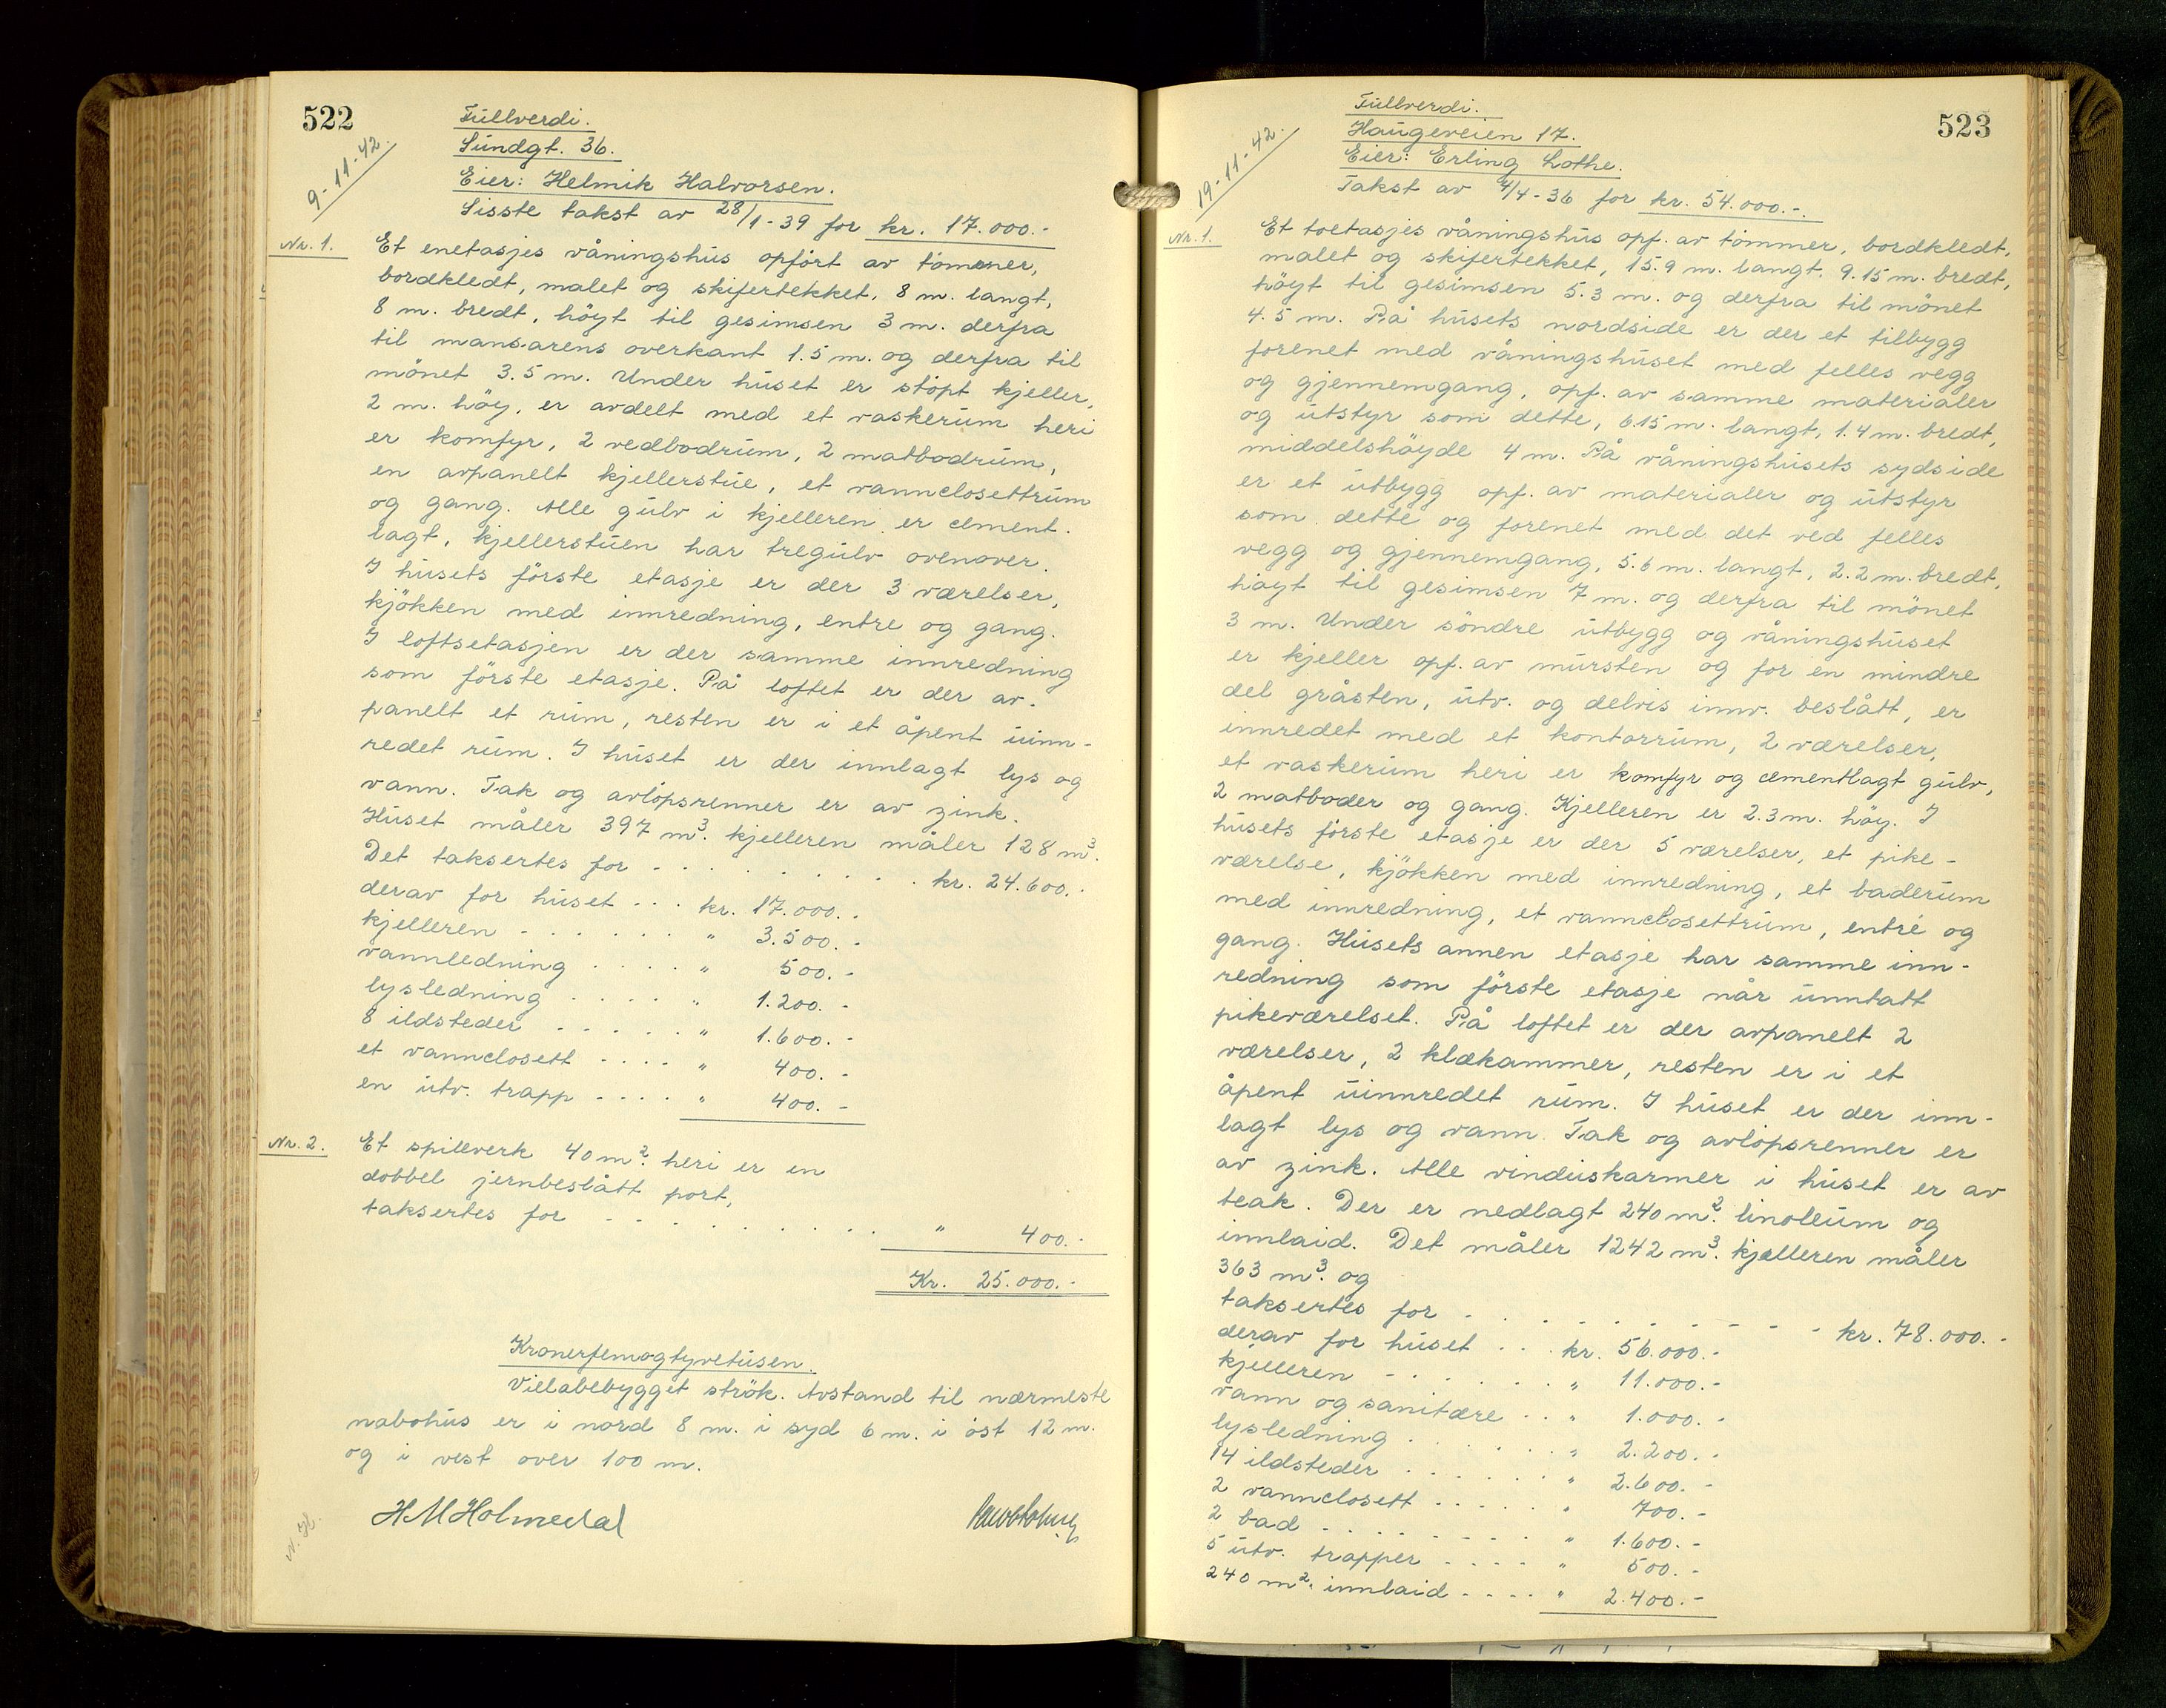 522
9-11-42.
Fullverdi.
Sundgt. 36.
Eier: Helmik Halvorsen.
Sisste takst av 28/1-39 for kr. 17.000.-
Nr. 1.
Et enetasjes våningshus opført av tømmer,
bordkledt, malet og skifertekket, 8 m. langt,
8 m. bredt, høyt til gesimsen 3 m. derfra
til mansarens overkant 1.5 m. og derfra til
mönet 3.5 m. Under huset er støpt kjeller,
2 m. høy, er avdelt med et vaskerum heri
er komfyr, 2 vedbodrum, 2 matbodrum,
en avpanelt kjellerstue, et vannclosettrum
og gang. Alle gulv i kjelleren er cement.
lagt, kjellerstuen har tregulv ovenover.
I husets første etasje er der 3 værelser,
kjökken med innredning, entre og gang.
I loftsetasjen er der samme innredning
som første etasje. På loftet er der av-
panelt et rum, resten er i et åpent uinn-
redet rum. I huset er der innlagt lys og
vann. Tak og avlöpsrenner er av zink.
Huset måler 397 m³. kjelleren måler 128 m³.
Det taksertes for - - - - - - - - kr. 24.600.-
derav for huset - - - kr. 17.000.-
kjelleren - - - - - - " 3.500.-
vannledning - - - - " 500.-
lysledning - - - - " 1.200.-
8 ildsteder - - - - - " 1.600.-
et vannclosett - - - - " 400.-
en utv. trapp - - - - " 400.-
Nr. 2.
Et spilleverk 40 m². heri er en
dobbel jernbeslått port,
taksertes for - - - - - - - - - - " 400.-
Kr. 25.000.-
Kronerfemogtyvetusen.
Villabebygget strök. Avstand til nærmeste
nabohus er i nord 8 m. i syd 6 m. i öst 12 m.
og i vest over 100 m.
N.H.
H M Holmedal
523
19-11-42.
Fullverdi.
Haugeveien 17.
Eier: Erling Lothe.
Takst av 4/4-36 for kr. 54.000.-.
Nr. 1.
Et toetasjes våningshus opf. av tömmer, bordkledt,
malet og skifertekket, 15.9 m. langt, 9.15 m. bredt,
höyt til gesimsen 5.3 m. og derfra til mönet
4.5 m. På husets nordside er der et tilbygg
forenet med våningshuset med felles vegg
og gjennemgang, opf. av samme materialer
og utstyr som dette, 6.15 m. langt, 1.4 m. bredt,
middelshöyde 4 m. På våningshusets sydside
er et utbygg opf. av materialer og utstyr
som dette og forenet med det ved felles
vegg og gjennemgang, 5.6 m. langt, 2.2 m. bredt,
höyt til gesimsen 7 m. og derfra til mönet
3 m. Under söndre utbygg og våningshuset
er kjeller opf. av mursten og for en mindre
del gråsten, utv. og delvis innv. beslått, er
innredet med et kontorrum, 2 værelser,
et vaskerum heri er komfyr og cementlagt gulv,
2 matboder og gang. Kjelleren er 2.3 m. höy. I
husets förste etasje er der 5 værelser, et pike-
værelse, kjökken med innredning, et baderum
med innredning, et vannclosettrum, entré og
gang. Husets annen etasje har samme inn-
redning som förste etasje når unntatt
pikeværelset. På loftet er der avpanelt 2
værelser, 2 klækammer, resten er i et
åpent uinnredet rum. I huset er der inn-
lagt lys og vann. Tak og avlöpsrenner er
av zink. Alle vinduskarmer i huset er av
teak. Der er nedlagt 240 m². linoleum og
innlaid. Det måler 1242 m³. kjelleren måler
363 m³. og
taksertes for - - - - - - - - - - kr. 78.000.-
derav for huset - - - kr. 56.000.-
kjelleren - - - - - - " 11.000.-
vann og sanitære - - " 1.000.-
lysledning - - - - - - " 2.200.-
14 ildsteder - - - - - " 2.600.-
2 vannclosett - - - - - " 700.-
2 bad - - - - - - - - " 1.600.-
5 utv. trapper - - - - " 500.-
240 m². innlaid - - - - " 2.400.-